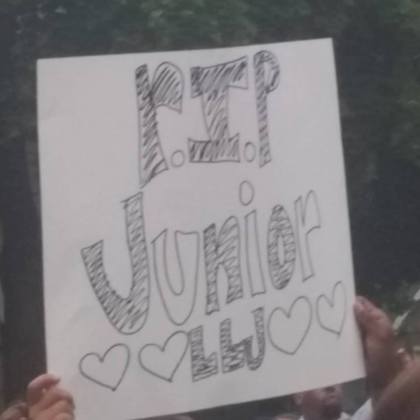 r.I.P
Junior
LLJ